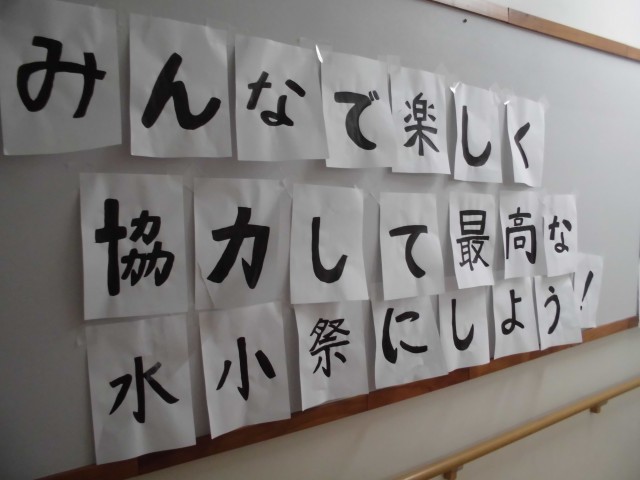 みんなで楽しく
協力して最高な
水小祭にしよう!